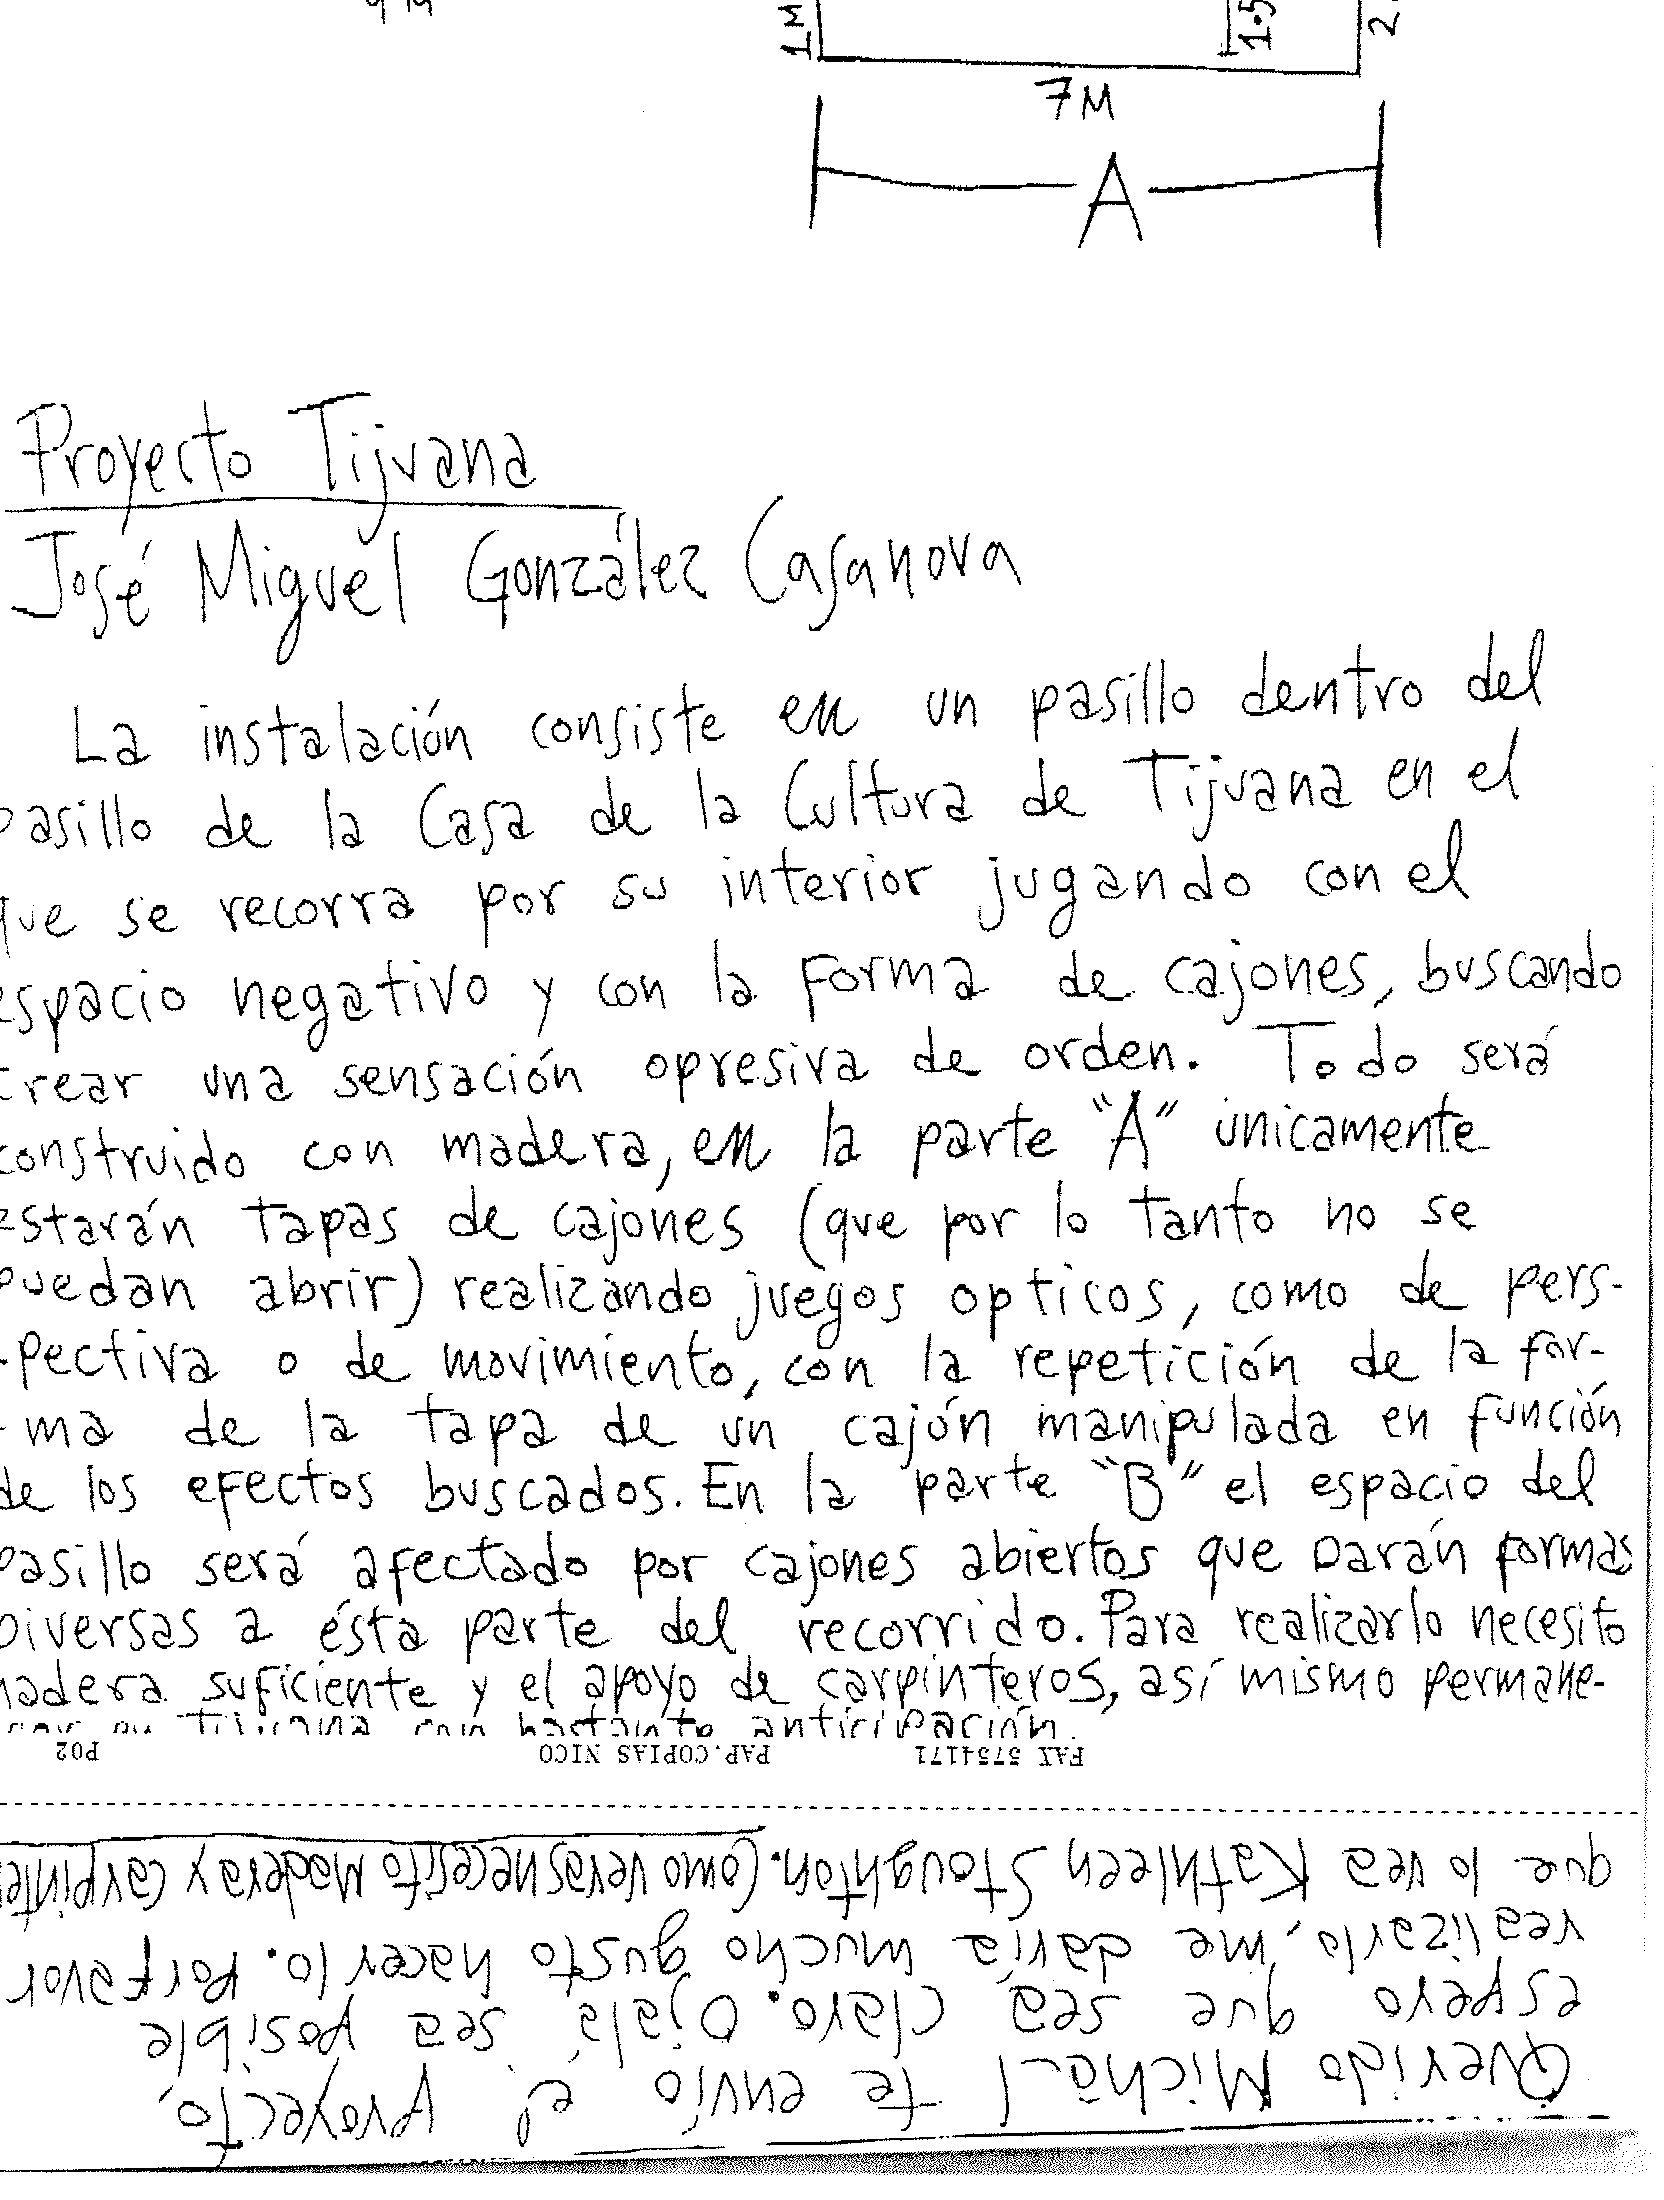 1M
1.5
2.
7M
A
Proyecto Tijuana
José Miguel González Casanova
La instalación consiste en un pasillo dentro del
pasillo de la Casa de la Cultura de Tijuana en el
que se recorra por su interior jugando con el
espacio negativo y con la forma de cajones, buscando
crear una sensación opresiva de orden. Todo será
construido con madera, en la parte "A" únicamente
estarán tapas de cajones (que por lo tanto no se
puedan abrir) realizando juegos opticos, como de pers-
-pectiva o de movimiento, con la repetición de la for-
-ma de la tapa de un cajón manipulada en función
de los efectos buscados. En la parte "B" el espacio del
pasillo será afectado por cajones abiertos que Darán formas
Diversas a ésta parte del recorrido. Para realizarlo necesito
madera suficiente y el apoyo de carpinteros, así mismo permane-
cer en Tijuana con bastante anticipación.
FAX 5754171 PAP.COPIAS NICO P02
Querido Michael te envío el proyecto,
espero que sea claro. Ojalá sea posible
realizarlo, me daría mucho gusto hacerlo. Por favor
que lo vea Kathleen Stoughton. Como veras necesito Madera y Carpinte